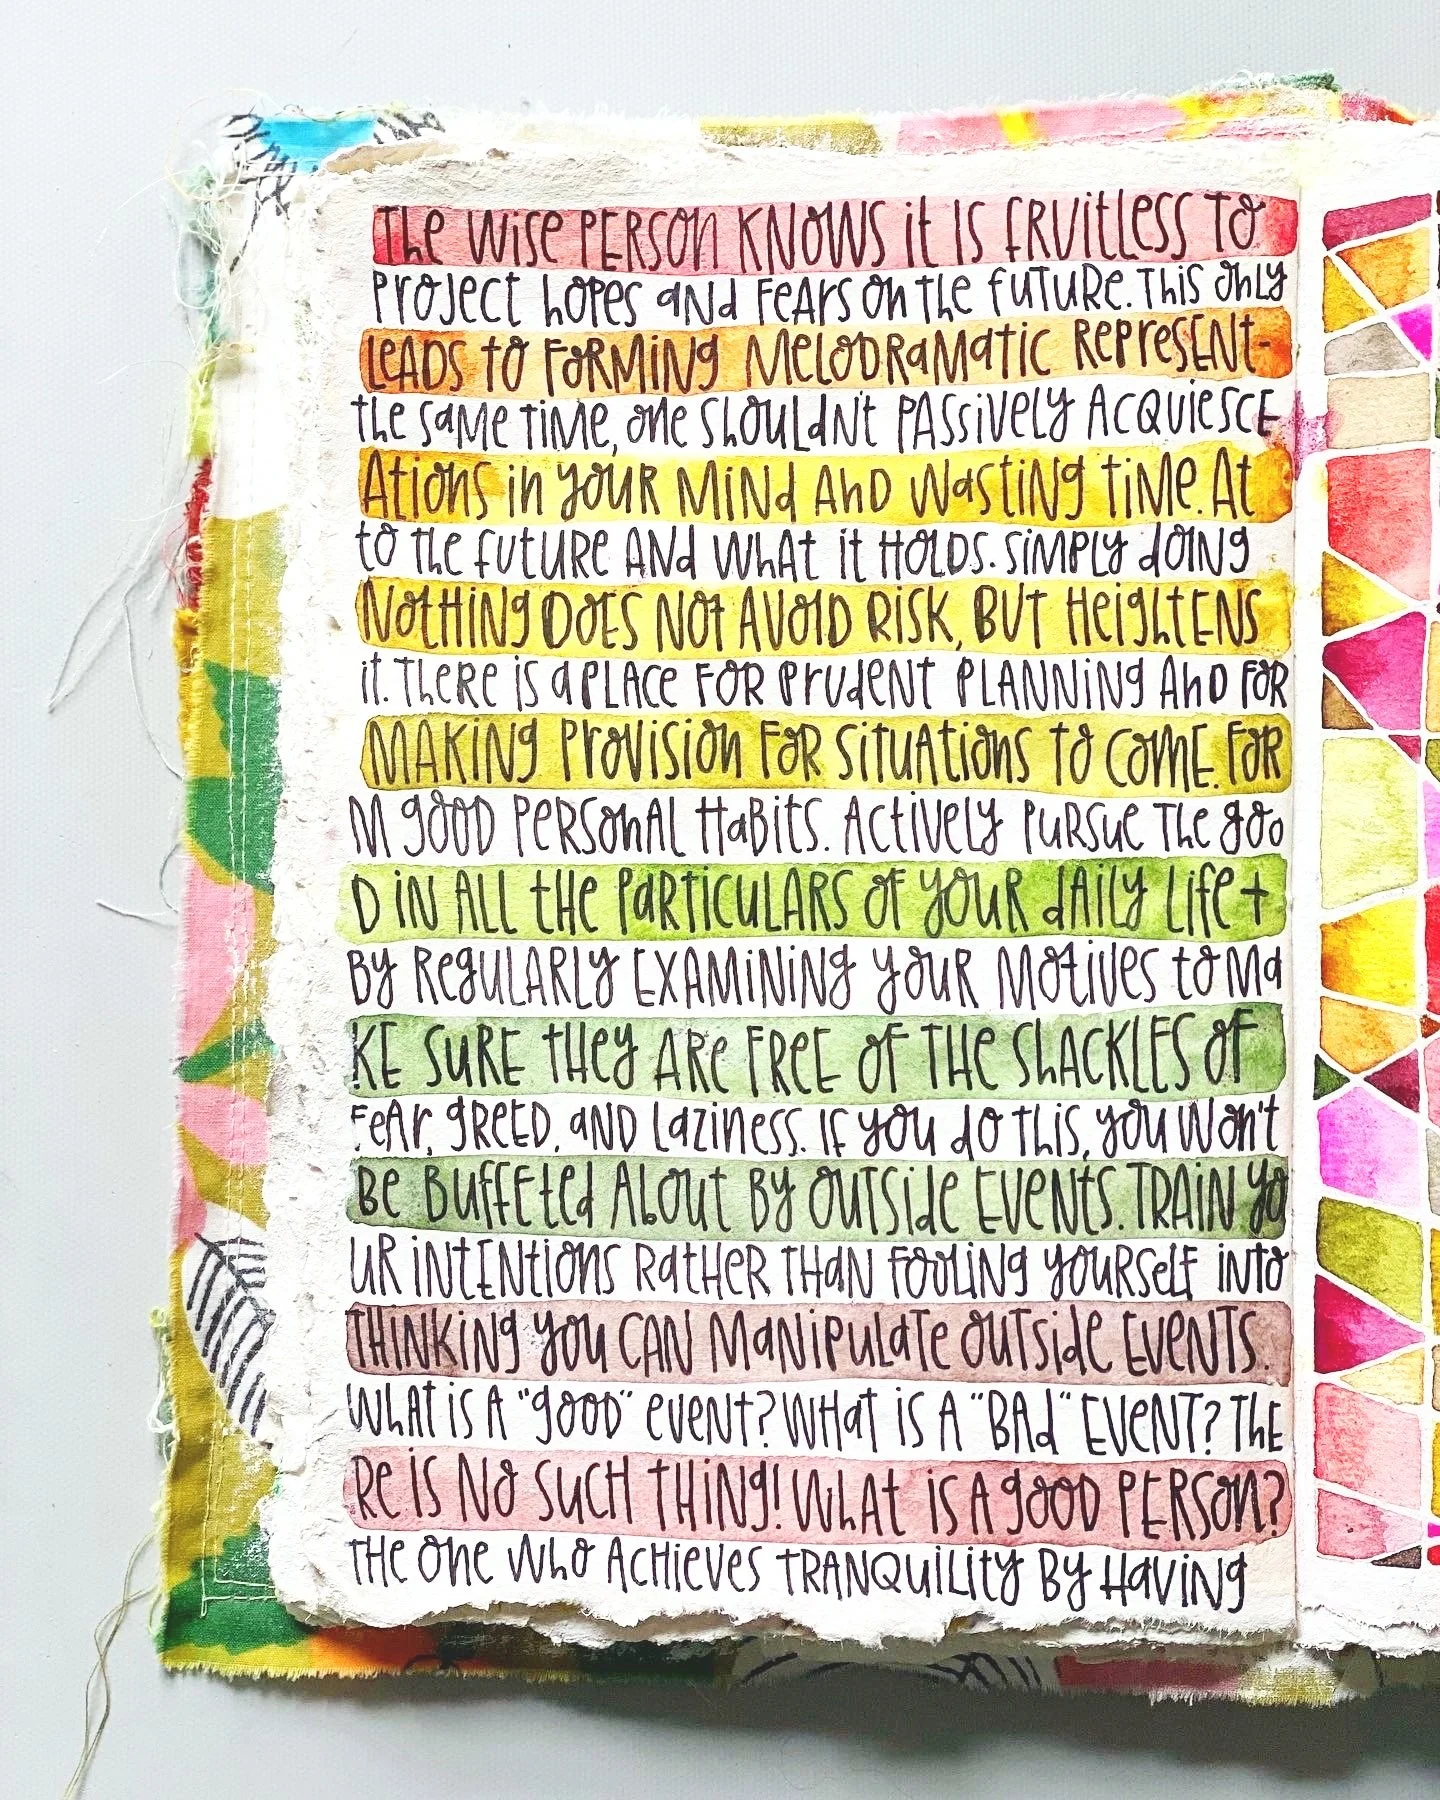 The wise person knows it is fruitless to
project hopes and fears on the future. This only
leads to forming melodramatic represent-
the same time, one shouldn't passively acquiesce
ations in your mind and wasting time. At
to the future and what it holds. Simply doing
nothing does not avoid risk, but heightens
it. There is a place for prudent planning and for
making provision for situations to come. For
m good personal habits. Actively pursue the goo
d in all the particulars of your daily life +
by regularly examining your motives to ma
ke sure they are free of the shackles of
fear, greed, and laziness. If you do this, you won't
be buffeted about by outside events. Train yo
ur intentions rather than fooling yourself into
thinking you can manipulate outside events.
What is a "good" event? What is a "bad" event? The
re is no such thing! What is a good person?
The one who achieves tranquility by having